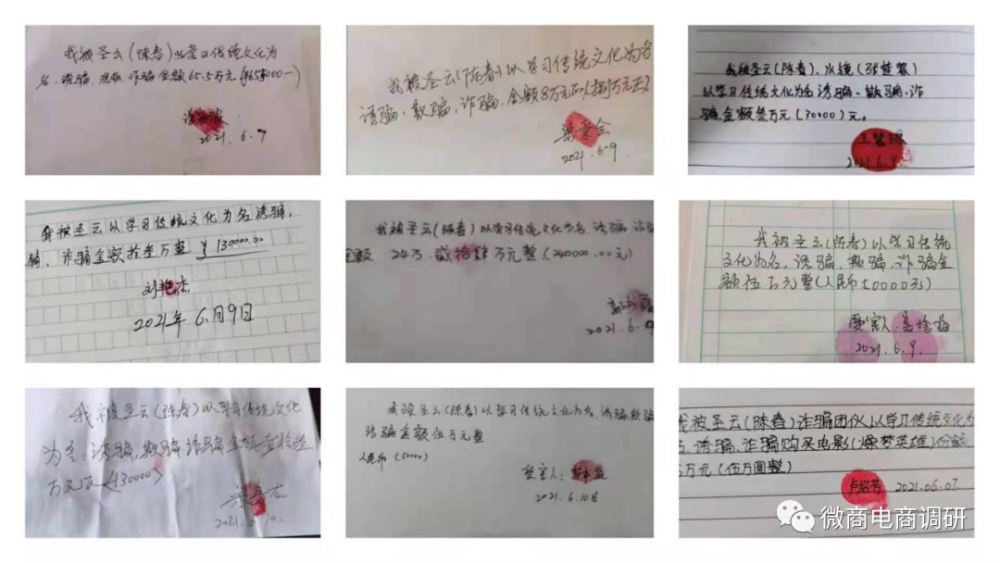 我被圣云(陈春)以学习传统文化为
名.诱骗.欺骗.诈骗金额65.5万元(655000一)
2021.6.9
我被圣云(陈春)以学习传统文化为名
诱骗,欺骗,诈骗,金额8万元正(捌万元正)
2021.6.9
我被圣云(陈春)、水镜(张楚蒙)
以学习传统文化为名诱骗、欺骗、诈
骗金额叁万元(30000)元。
2021.6.
我被圣云以学习传统文化为名诱骗,
骗,诈骗金额拾叁万整 ¥130000.00
刘艳杰
2021年6月9日
我被圣云(陈春)以学习传统文化为名,诱骗
金额 24万.贰拾肆万元整(240000.00元)
2021.6.9
我被圣云(陈春)以学习传统
文化为名,诱骗,欺骗,诈骗金
额伍万元整(人民币50000元)
受害人:
2021.6.9.
我被圣云(陈春)以学习传统文化
为名.诱骗,欺骗,诈骗金额壹拾叁
万元正(130000)
2021.6.10.
我被圣云(陈春)以学习传统文化为名,诱骗欺骗
诈骗金额伍万元整
人民币(50000)
受害人:
2021.6.10日
我被圣云(陈春)诈骗团伙)以学习传统文化为
名、诱骗、诈骗购买电影(爆梦英雄)份额
5万元(伍万圆整)
卢绍芳 2021.06.07.
微商电商调研